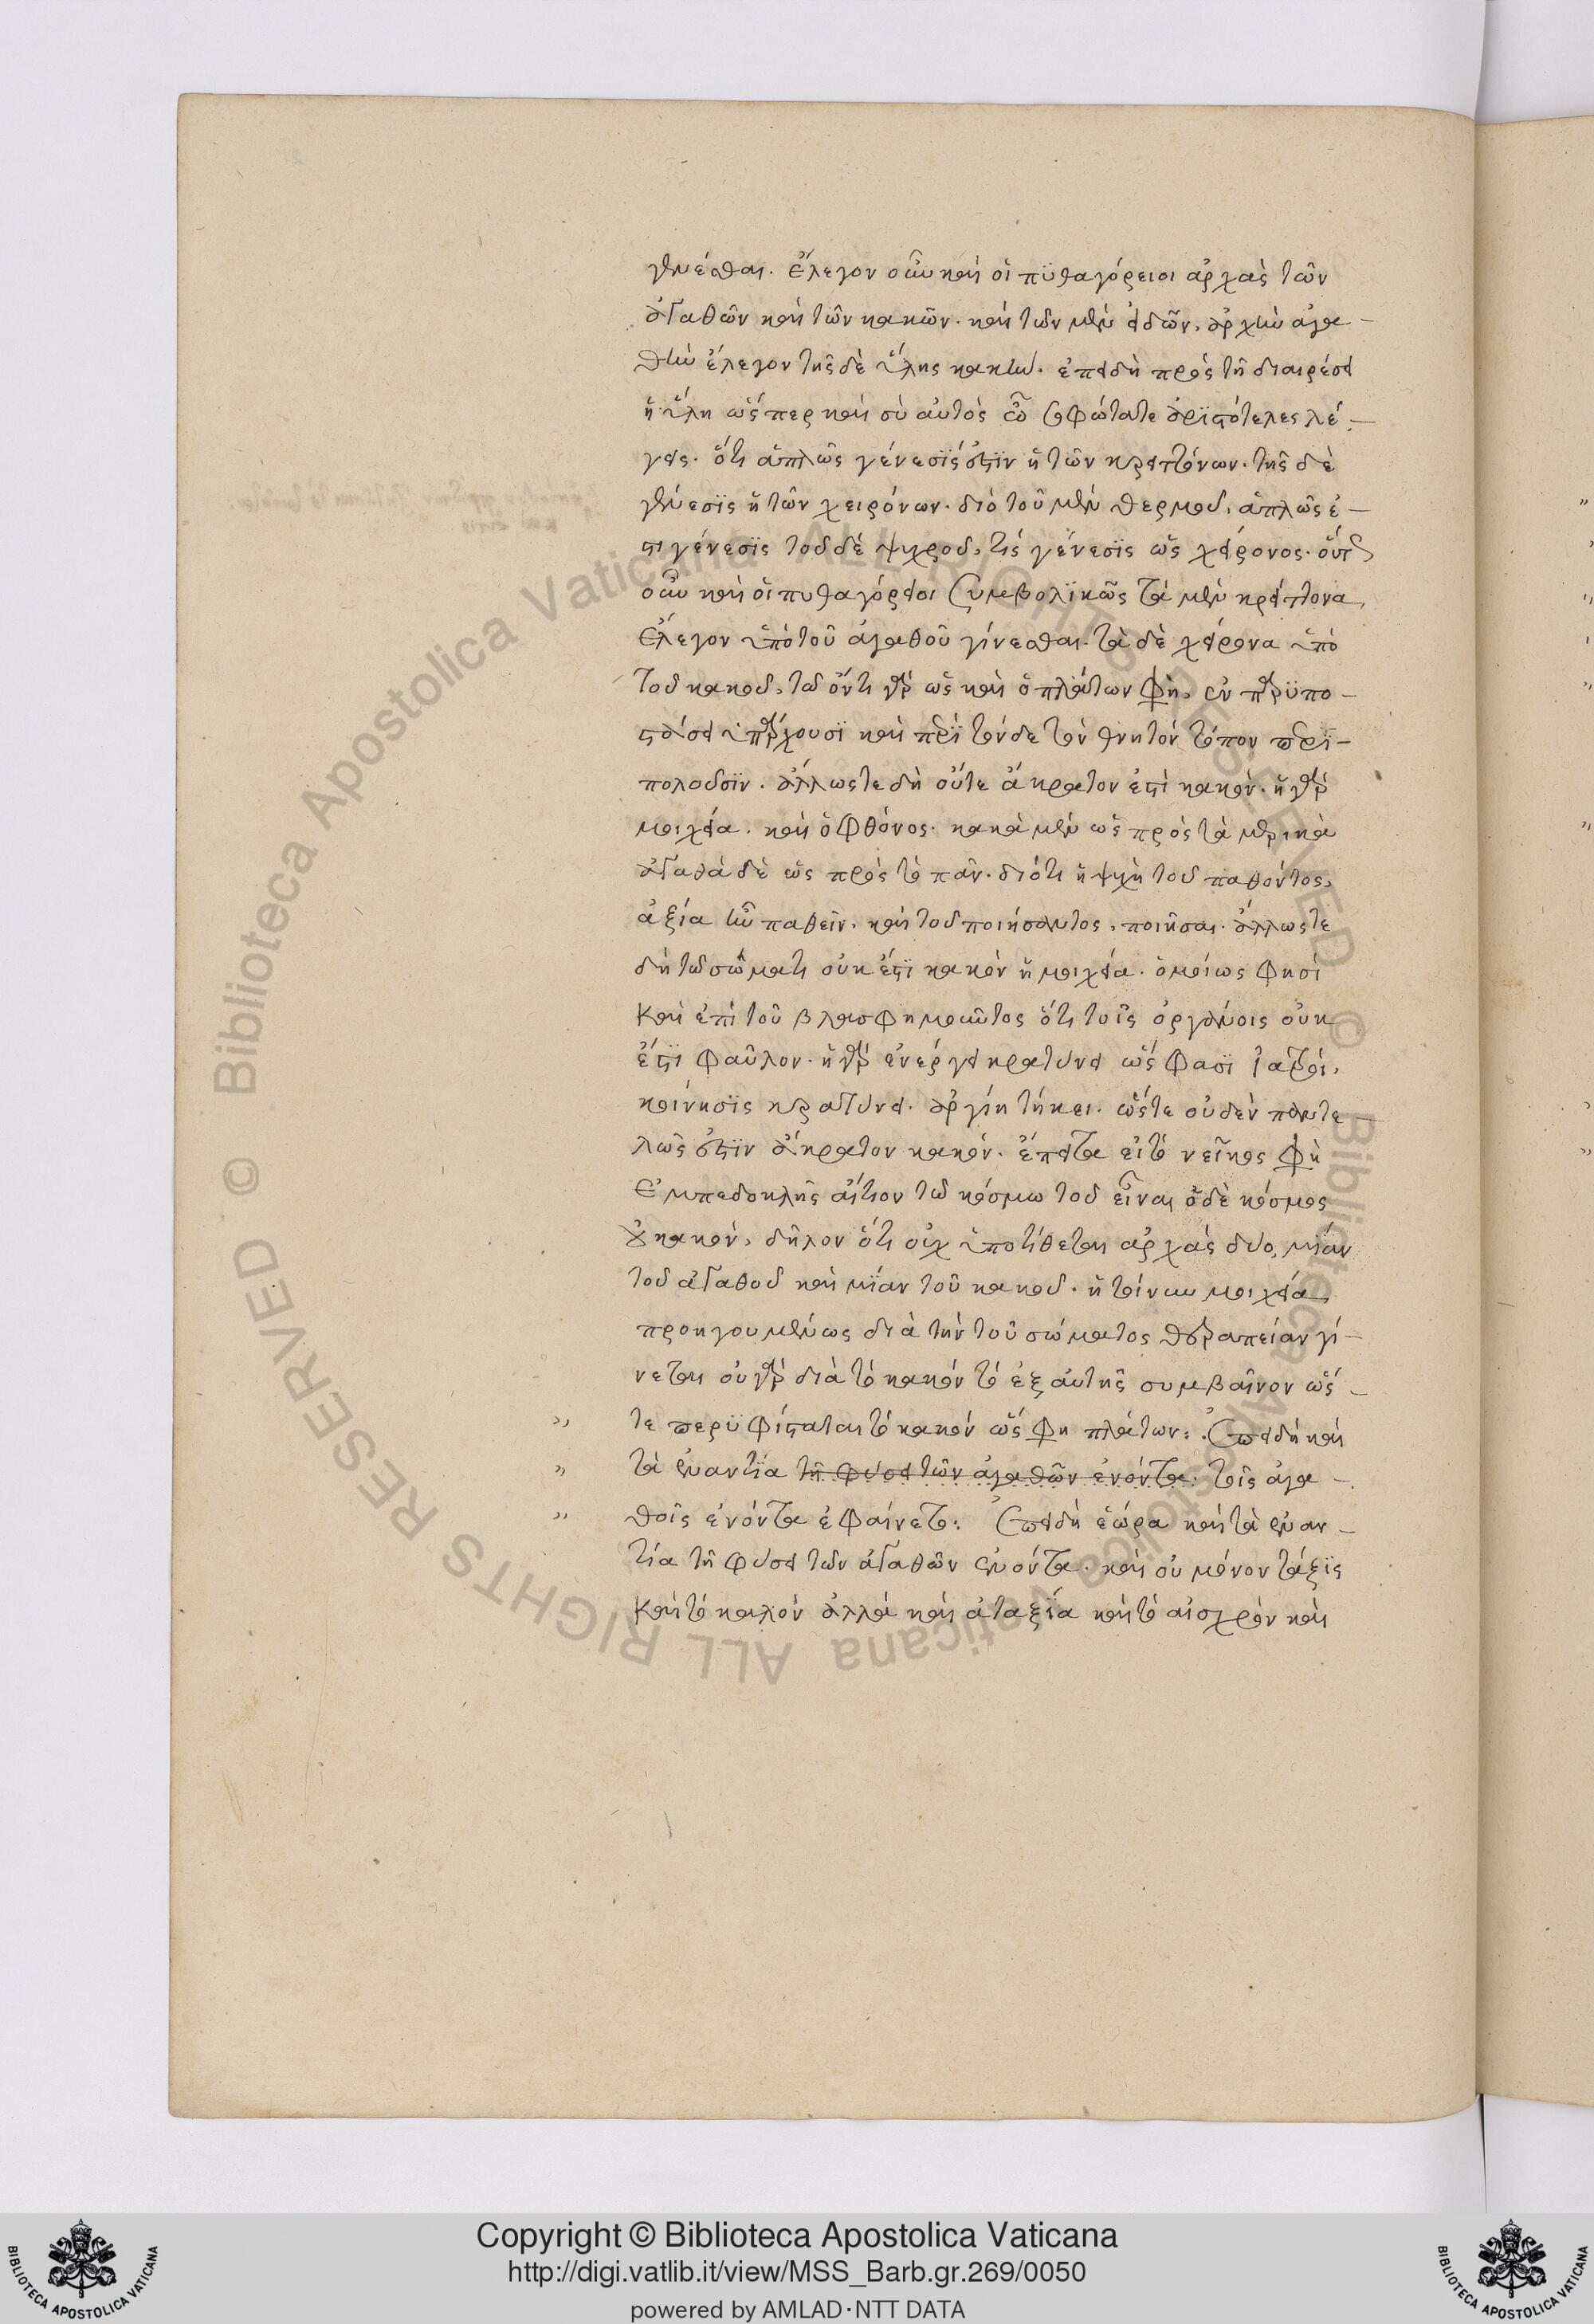 γενέσθαι. ἔλεγον οὖν καὶ οἱ πϋθαγόρειοι ἀρχὰς τῶν
ἀγαθῶν καὶ τῶν κακῶν. καὶ τῶν μὲν εἰδῶν, ἀρχὴν ἀγα-
θὴν ἔλεγον τῆς δὲ ὕλης κακήν. ἐπειδὴ πρὸς τῇ διαιρέσει
ἡ ὕλη ὥσπερ καὶ σὺ αὐτὸς ὦ σοφώτατε ἀρϊστότελες λέ-
γεις. ὅτι ἁπλῶς γένεσίς ἐστϊν ἡ τῶν κρειττόνων. τὶς δὲ
γένεσϊς ἡ τῶν χειρόνων. διὸ τοῦ μὲν θερμοῦ, ἁπλῶς ἐ-
στι γένεσϊς τοῦ δὲ ψυχροῦ, τὶς γένεσϊς ὡς χείρονος. οὕτως
οὖν καὶ οἱ πυθαγόρειοι συμβολϊκῶς τὰ μὲν κρείττονα,
ἔλεγον ὑπὸ τοῦ ἀγαθοῦ γίνεσθαι. τὰ δὲ χείρονα ὑπὸ
τοῦ κακοῦ, τῶ ὄντι γὰρ ὡς καὶ ὁ πλάτων φησὶ, ἐν παρϋπο-
στάσει ὑπάρχουσϊ καὶ περὶ τόνδε τὸν θνητὸν τόπον περϊ-
πολοῦσϊν. ἄλλως τε δὴ οὔτε ἄκρατον ἐστὶ κακὸν. ἡ γὰρ
μοιχεία. καὶ ὁ φθόνος. κακὰ μὲν ὡς πρὸς τὰ μερικὰ
ἀγαθὰ δὲ ὡς πρὸς τὸ πᾶν. διότι ἡ ψυχὴ τοῦ παθόντος,
ἀξία ἦν παθεῖν. καὶ τοῦ ποιήσαντος, ποιῆσαι. ἄλλως τε
δὴ τῶ σώματι οὐκ ἔστϊ κακὸν ἡ μοιχεία. ὁμοίως φησὶ
καὶ ἐπὶ τοῦ βλασφημοῦντος ὅτι τοῖς ὀργάνοις οὐκ
ἔστϊ φαῦλον. ἡ γὰρ ἐνέργεια κρατύνει ὥς φασϊ ἰατροὶ,
κοίνησϊς κρατύνει. ἀργίη τήκει. ὥστε οὐδὲν παντε-
λῶς ἐστϊν ἄκρατον κακόν. ἔπειτα εἰ τὸ νεῖκος φησὶ
ἐμπεδοκλῆς αἴτιον τῶ κόσμω τοῦ εἶναι ὁ δὲ κόσμος
οὐ κακὸν, δῆλον ὅτι οὐχ ὑποτίθεται ἀρχὰς δύο, μίαν
τοῦ ἀγαθοῦ καὶ μϊαν τοῦ κακοῦ. ἡ τοίνυν μοιχεία,
προηγουμένως διὰ τὴν τοῦ σώματος θεραπείαν γί-
νεται οὐ γὰρ διὰ τὸ κακόν τὸ ἐξ αὐτῆς συμβαῖνον ὥς-
τε παρϋφίσταται τὸ κακόν ὥς φησι πλάτων: ἐπειδὴ καὶ
τὰ ἐναντϊα τῇ φύσει τῶν ἀγαθῶν ἐνόντα. τοῖς ἀγα-
θοῖς ἐνόντα ἐφαίνετο: ἐπειδὴ ἑώρα καὶ τὰ ἐναν-
τία τῇ φύσει τῶν ἀγαθῶν ἐνόντα. καὶ οὐ μόνον τάξϊς
καὶ τὸ καλὸν ἀλλὰ καὶ ἀταξϊα καὶ τὸ αἰσχρὸν καὶ
Copyright © Biblioteca Apostolica Vaticana
http://digi.vatlib.it/view/MSS_Barb.gr.269/0050
powered by AMLAD·NTT DATA